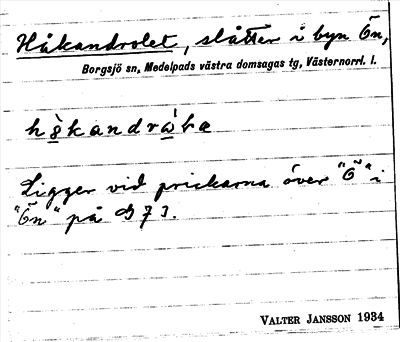 Håkandrolet, slåtter i byn Ön,
Borgsjö sn, Medelpads västra domsagas tg, Västernorrl. l.
Ligger vid prickarna över "Ö" i
"Ön" på B 73.
VALTER JANSSON 1934